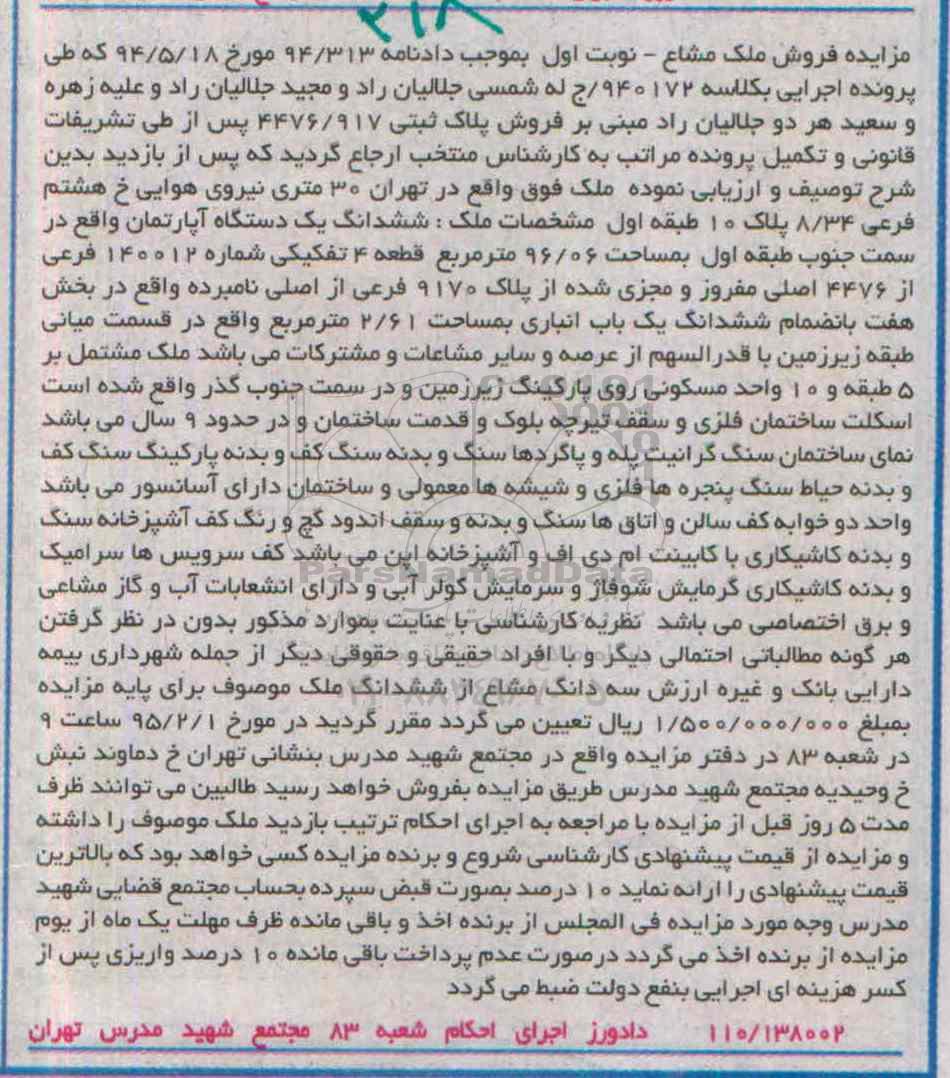 ۲۱۸
مزایده فروش ملک مشاع - نوبت اول بموجب دادنامه ۹۴/۳۱۳ مورخ ۹۴/۵/۱۸ که طی
پرونده اجرایی بکلاسه ۹۴۰۱۷۲/ج له شمسی جلالیان راد و مجید جلالیان راد و علیه زهره
و سعید هر دو جلالیان راد مبنی بر فروش پلاک ثبتی ۴۴۷۶/۹۱۷ پس از طی تشریفات
قانونی و تکمیل پرونده مراتب به کارشناس منتخب ارجاع گردید که پس از بازدید بدین
شرح توصیف و ارزیابی نموده ملک فوق واقع در تهران ۳۰ متری نیروی هوایی خ هشتم
فرعی ۸/۳۴ پلاک ۱۰ طبقه اول مشخصات ملک : ششدانگ یک دستگاه آپارتمان واقع در
سمت جنوب طبقه اول بمساحت ۹۶/۰۶ مترمربع قطعه ۴ تفکیکی شماره ۱۴۰۰۱۲ فرعی
از ۴۴۷۶ اصلی مفروز و مجزی شده از پلاک ۹۱۷۰ فرعی از اصلی نامبرده واقع در بخش
هفت بانضمام ششدانگ یک باب انباری بمساحت ۲/۶۱ مترمربع واقع در قسمت میانی
طبقه زیرزمین با قدرالسهم از عرصه و سایر مشاعات و مشترکات می باشد ملک مشتمل بر
۵ طبقه و ۱۰ واحد مسکونی روی پارکینگ زیرزمین و در سمت جنوب گذر واقع شده است
اسکلت ساختمان فلزی و سقف تیرچه بلوک و قدمت ساختمان و در حدود ۹ سال می باشد
نمای ساختمان سنگ گرانیت پله و پاگردها سنگ و بدنه سنگ کف و بدنه پارکینگ سنگ کف
و بدنه حیاط سنگ پنجره ها فلزی و شیشه ها معمولی و ساختمان دارای آسانسور می باشد
واحد دو خوابه کف سالن و اتاق ها سنگ و بدنه و سقف اندود گچ و رنگ کف آشپزخانه سنگ
و بدنه کاشیکاری با کابینت ام دی اف و آشپزخانه اپن می باشد کف سرویس ها سرامیک
و بدنه کاشیکاری گرمایش شوفاژ و سرمایش کولر آبی و دارای انشعابات آب و گاز مشاعی
و برق اختصاصی می باشد نظریه کارشناسی با عنایت بموارد مذکور بدون در نظر گرفتن
هر گونه مطالباتی احتمالی دیگر و با افراد حقیقی و حقوقی دیگر از جمله شهرداری بیمه
دارایی بانک و غیره ارزش سه دانگ مشاع از ششدانگ ملک موصوف برای پایه مزایده
بمبلغ ۱/۵۰۰/۰۰۰/۰۰۰ ریال تعیین می گردد مقرر گردید در مورخ ۹۵/۲/۱ ساعت ۹
در شعبه ۸۳ در دفتر مزایده واقع در مجتمع شهید مدرس بنشانی تهران خ دماوند نبش
خ وحیدیه مجتمع شهید مدرس طریق مزایده بفروش خواهد رسید طالبین می توانند ظرف
مدت ۵ روز قبل از مزایده با مراجعه به اجرای احکام ترتیب بازدید ملک موصوف را داشته
و مزایده از قیمت پیشنهادی کارشناسی شروع و برنده مزایده کسی خواهد بود که بالاترین
قیمت پیشنهادی را ارائه نماید ۱۰ درصد بصورت قبض سپرده بحساب مجتمع قضایی شهید
مدرس وجه مورد مزایده فی المجلس از برنده اخذ و باقی مانده ظرف مهلت یک ماه از یوم
مزایده از برنده اخذ می گردد درصورت عدم پرداخت باقی مانده ۱۰ درصد واریزی پس از
کسر هزینه ای اجرایی بنفع دولت ضبط می گردد
۱۱۰/۱۳۸۰۰۲ دادورز اجرای احکام شعبه ۸۳ مجتمع شهید مدرس تهران
ParsNamadData